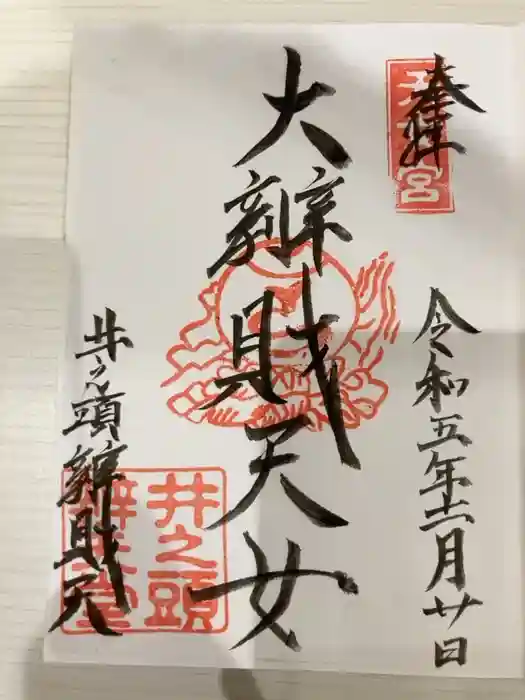 奉拝
令和五年十一月廿日
大辨財天女
井之頭辨財天
井之頭
辨財天堂